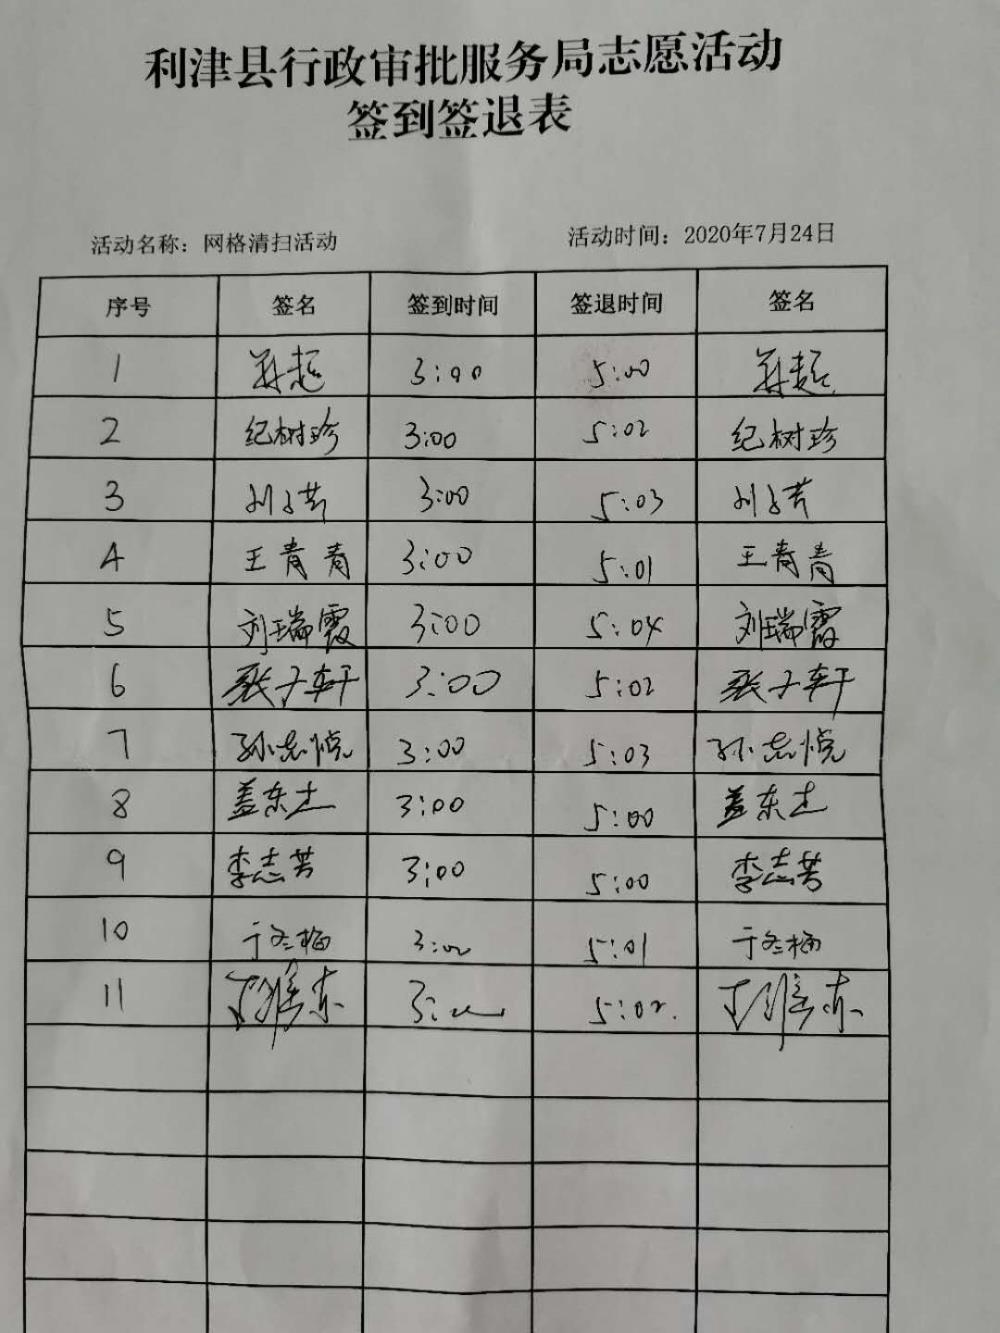 利津县行政审批服务局志愿活动
签到签退表
活动名称：网格清扫活动 活动时间：2020年7月24日
序号 签名 签到时间 签退时间 签名
1 3:00 5:00
2 纪树珍 3:00 5:02 纪树珍
3 3:00 5:03
4 王青青 3:00 5:01 王青青
5 刘瑞霞 3:00 5:04 刘瑞霞
6 张子轩 3:00 5:02 张子轩
7 孙志悦 3:00 5:03 孙志悦
8 盖东 3:00 5:00 盖东
9 李志芳 3:00 5:00 李志芳
10 于冬梅 3:00 5:01 于冬梅
11 3:00 5:02.